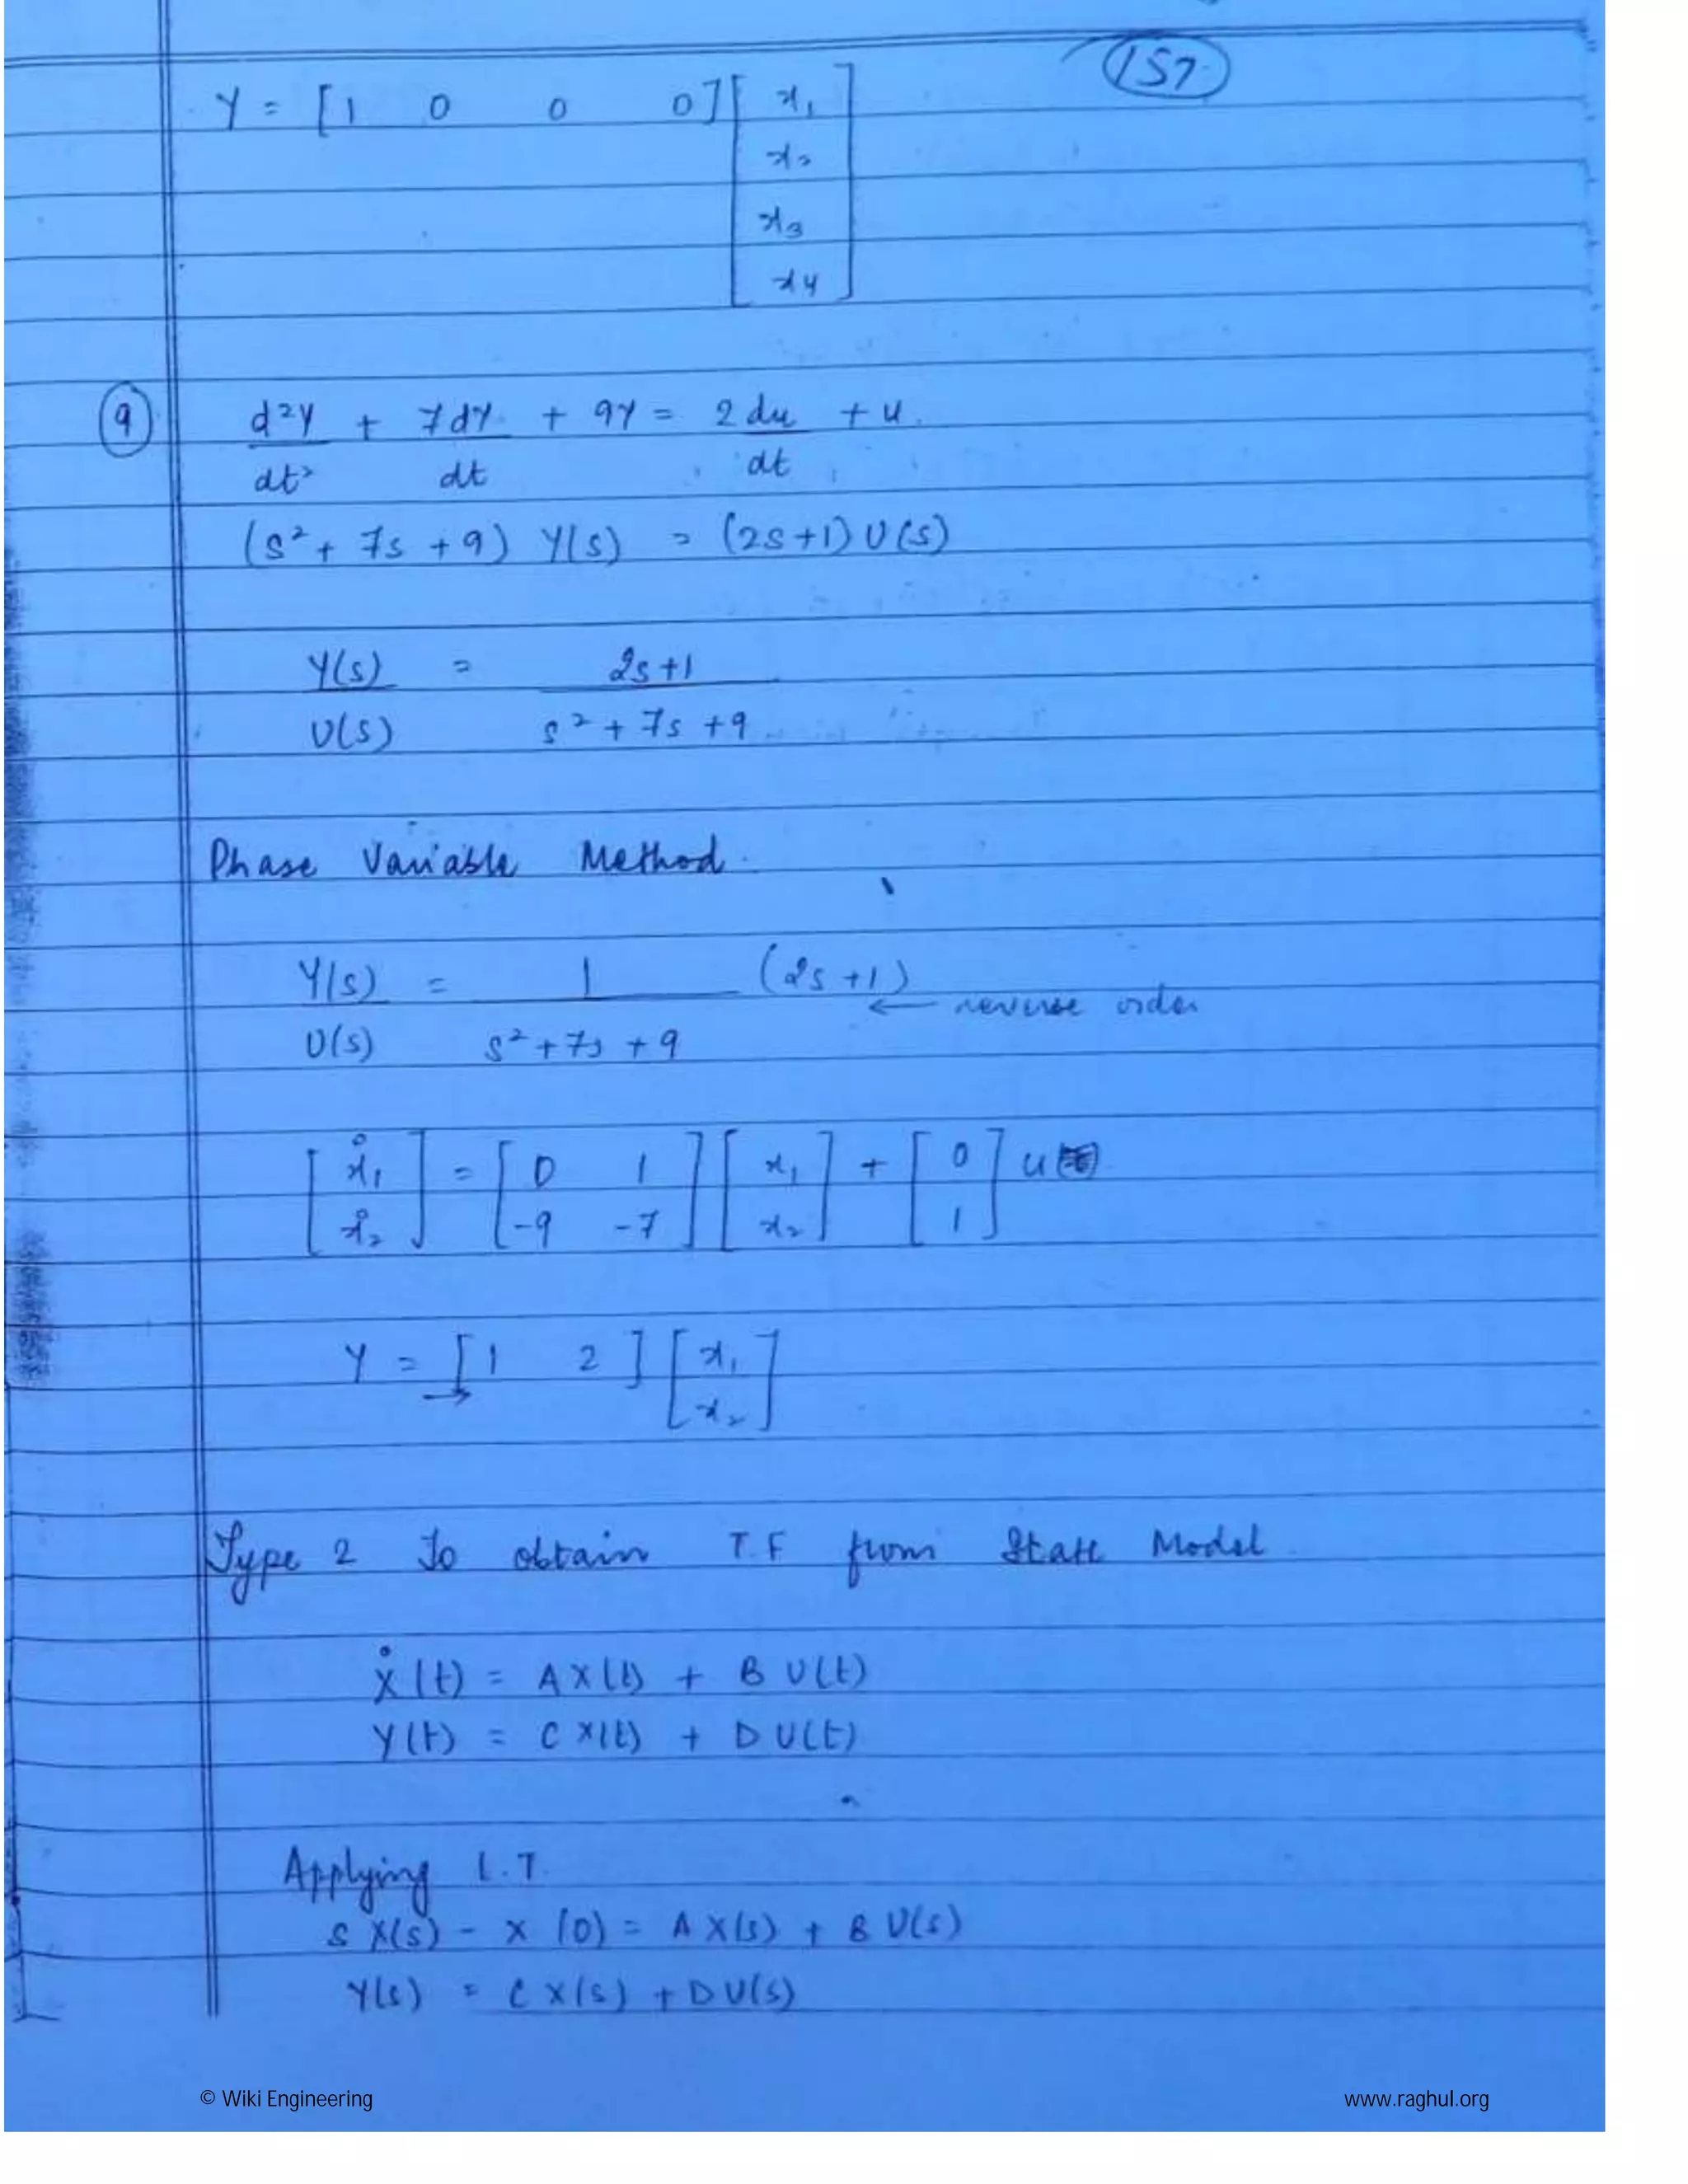 157
Y = [1 0 0 0] [x1
x2
x3
x4]
9 d²y/dt² + 7dy/dt + 9y = 2du/dt + u
(s² + 7s + 9) Y(s) = (2s+1) U(s)
Y(s)/U(s) = 2s+1 / s² + 7s + 9
Phase Variable Method
Y(s)/U(s) = 1/s²+7s+9 (2s+1)
← reverse order
[ẋ1 = [0 1 [x1 + [0 u
ẋ2] -9 -7] x2] 1]
Y = [1 2] [x1
x2]
Type 2 To obtain T.F from State Model
Ẋ(t) = A X(t) + B U(t)
Y(t) = C X(t) + D U(t)
Applying L.T.
S X(s) - x(0) = A X(s) + B U(s)
Y(s) = C X(s) + D U(s)
© Wiki Engineering www.raghul.org